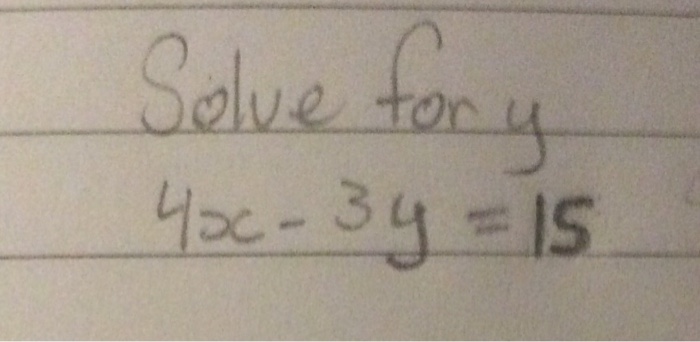 Solve for y
4x - 3y = 15